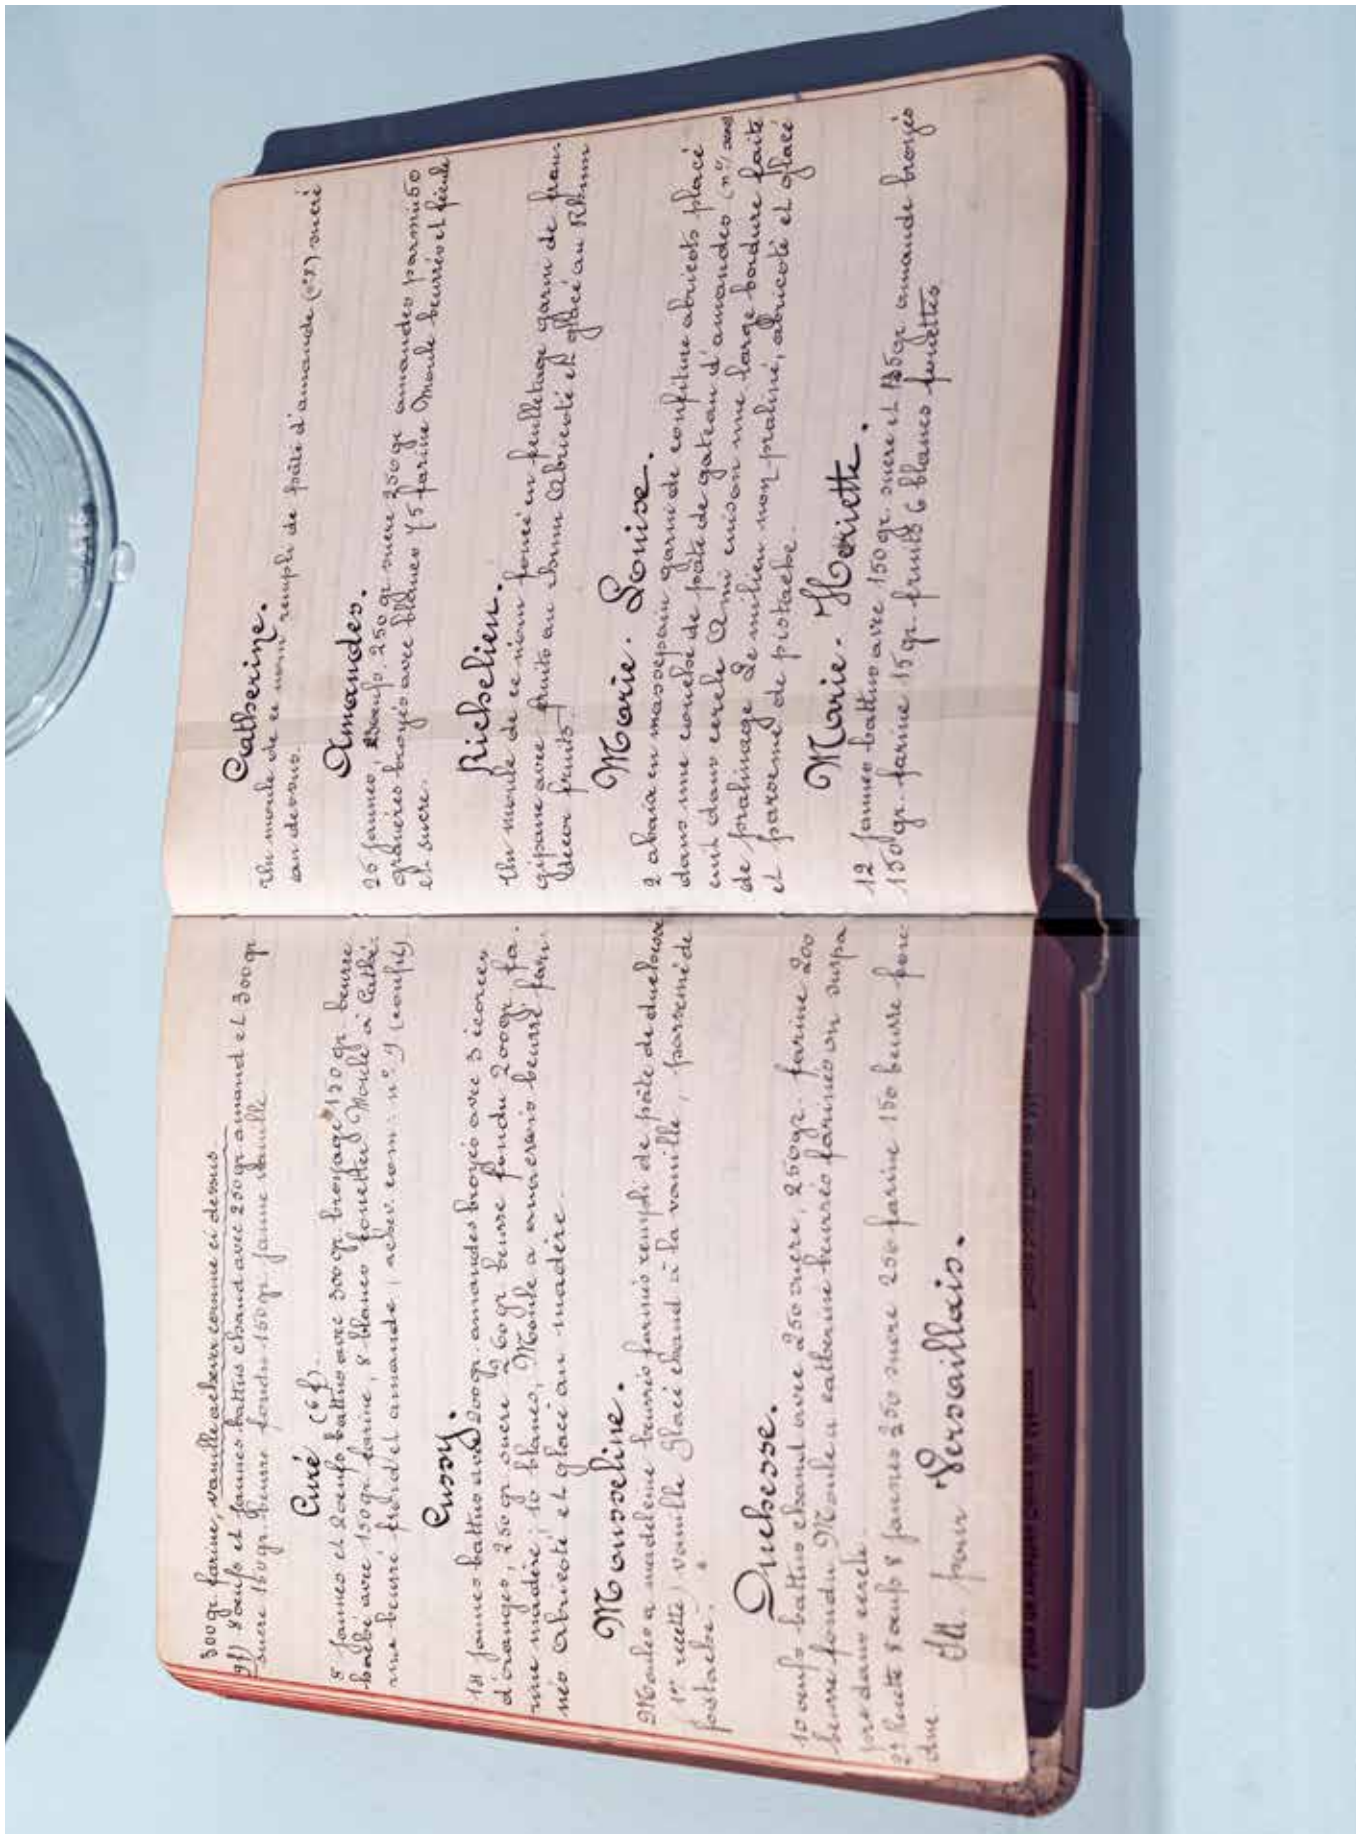 300 gr farine, vanille achever comme ci dessus
9f) 8 œufs et jaunes battus chaud avec 250 gr amand et 300 gr
sucre 150 gr beurre fondu 150 gr farine vanille
Curé (6f).
8 jaunes et 2 œufs battus avec 300 gr broyage 150 gr beurre
avec 150 gr farine, 8 blancs fouettés Moule à Cathé-
rine beurré et amande, achev. com: n° 9 (confit)
Cussy.
18 jaunes battus avec 200 gr. amandes broyés avec 3 écorces
d'oranges, 250 gr sucre 60 gr beurre fondu 200 gr fa-
rine madère; 10 blancs, Moule a beurré fari-
nés abricoté et glacé au madère
Mousseline.
Moules a madeleine beurrés farinés rempli de pâte de duchesse
1re recette) vanille glacé chaud à la vanille, parsemé de
pistache.
Duchesse.
10 œufs battus chaud avec 250 sucre, 250 gr. farine 200
beurre fondu Moule a catherine beurrés farinés on
dans cercle.
2e Recette 8 œufs 8 jaunes 250 sucre 250 farine 150 beurre fon-
due.
Id. pour Versaillais.
Catherine.
Un moule de ce nom rempli de pâte d'amande (n°8) sucré
au dessous.
Amandes.
25 jaunes, œufs, 250 gr sucre 250 gr amandes parmi 50
broyés avec blancs 75 farine Moule beurrés et fécule
et sucre.
Richelieu.
Un moule de ce nom foncé en feuilletage garni de fran-
gipane avec fruits au rhum Abricoté et glacé au Rhum
décor fruits.
Marie. Louise.
2 abaia en massepain garni de confiture abricots placé
dans une couche de pâte de gateau d'amandes (n°1 sans
cuit dans cercle Ami cuison une large bordure faite
de pralinage Le milieu non praliné, abricoté et glacé
et parsemé de pistache.
Marie. Heriette.
12 jaunes battus avec 150 gr. sucre et 125 gr amande broyés
150 gr. farine 15 gr. fruits 6 blancs fouettés.